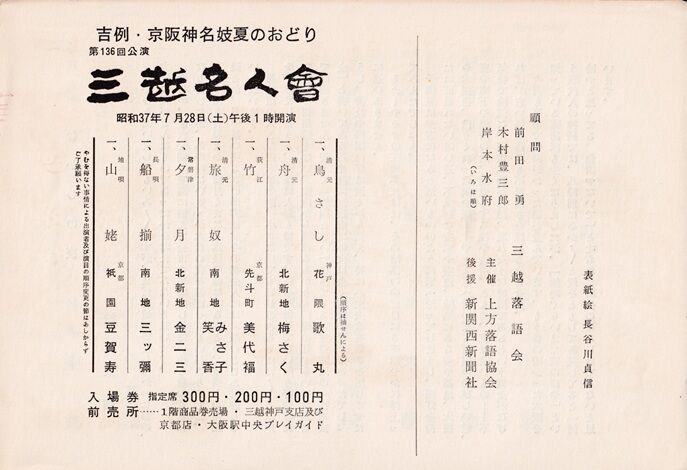 吉例・京阪神名妓夏のおどり
第136回公演
三越名人會
昭和37年7月28日(土)午後1時開演
(順序は抽せんによる)
一、清元 鳥さし 神戸 花隈 歌丸
一、清元 舟 北新地 梅さく
一、荻江 竹 京都 先斗町 美代福
一、清元 旅奴 南地 みさ子 笑香
一、常磐津 夕月 北新地 金二三
一、長唄 船揃 南地 三ッ彌
一、地唄 山姥 京都 祇園 豆賀寿
やむを得ない事情による出演者及び演目の順序変更の節はあしからず
ご了承願います
入場券 指定席 300円・200円・100円
前売所……1階商品券売場・三越神戸支店及び
京都店・大阪駅中央プレイガイド
表紙絵 長谷川貞信
三越落語会
主催 上方落語協会
後援 新関西新聞社
顧問
前田勇
木村豊三郎
岸本水府
(いろは順)